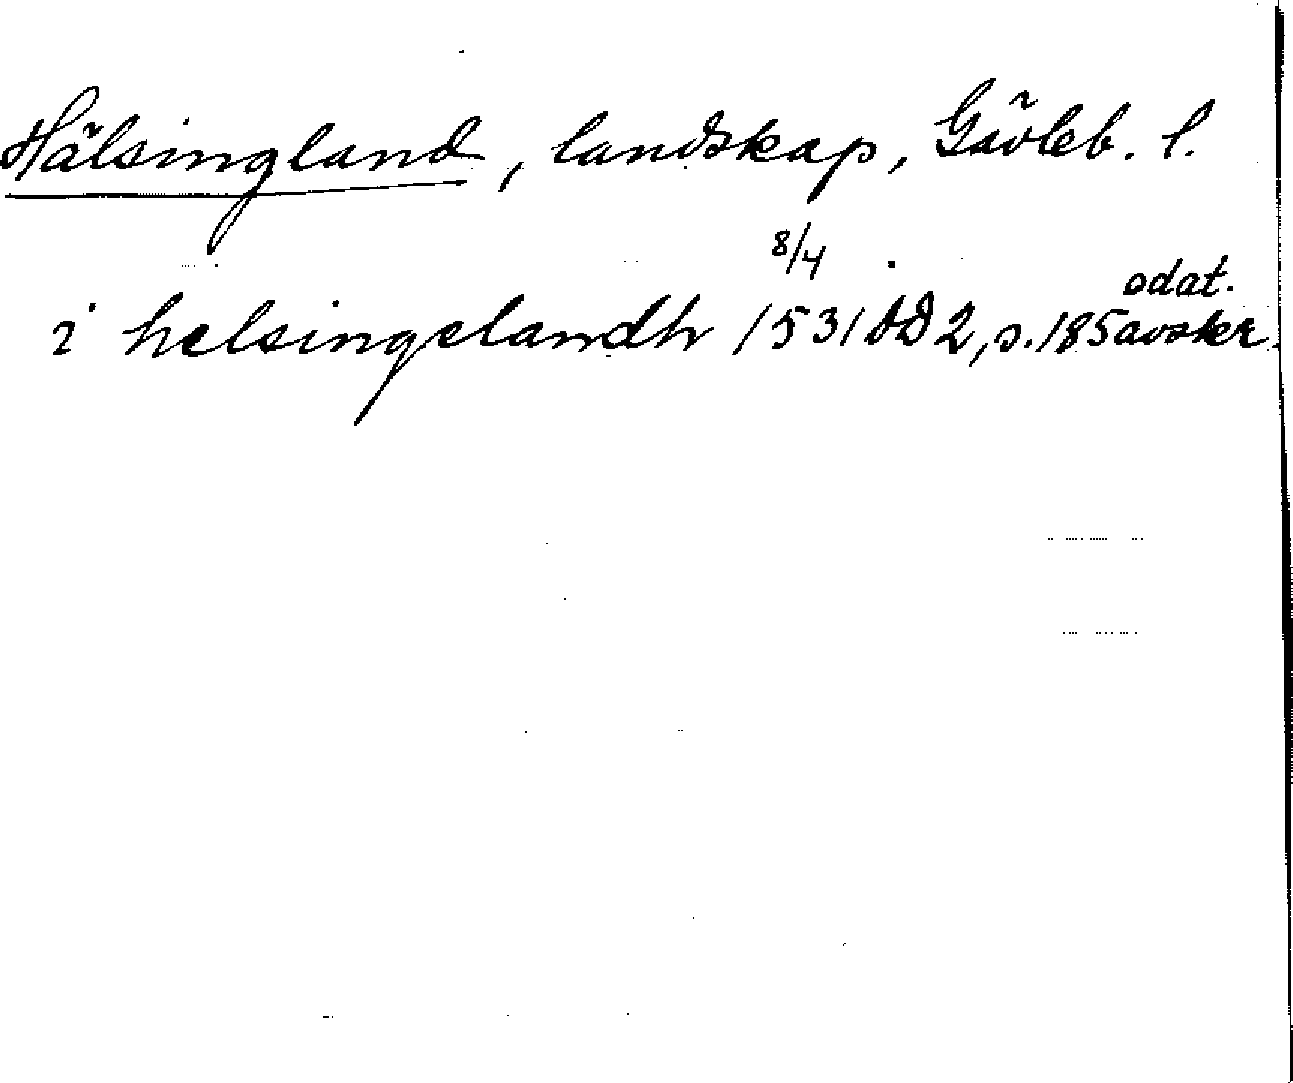 Hälsingland, landskap, Gävleb. l.
8/4
odat.
i helsingelandh 1531 DD 2, s. 185 avskr.